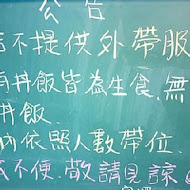 公告
不提供外帶服
丼飯皆為生食,無
丼飯.
依照人數帶位.
不便.敬請見諒